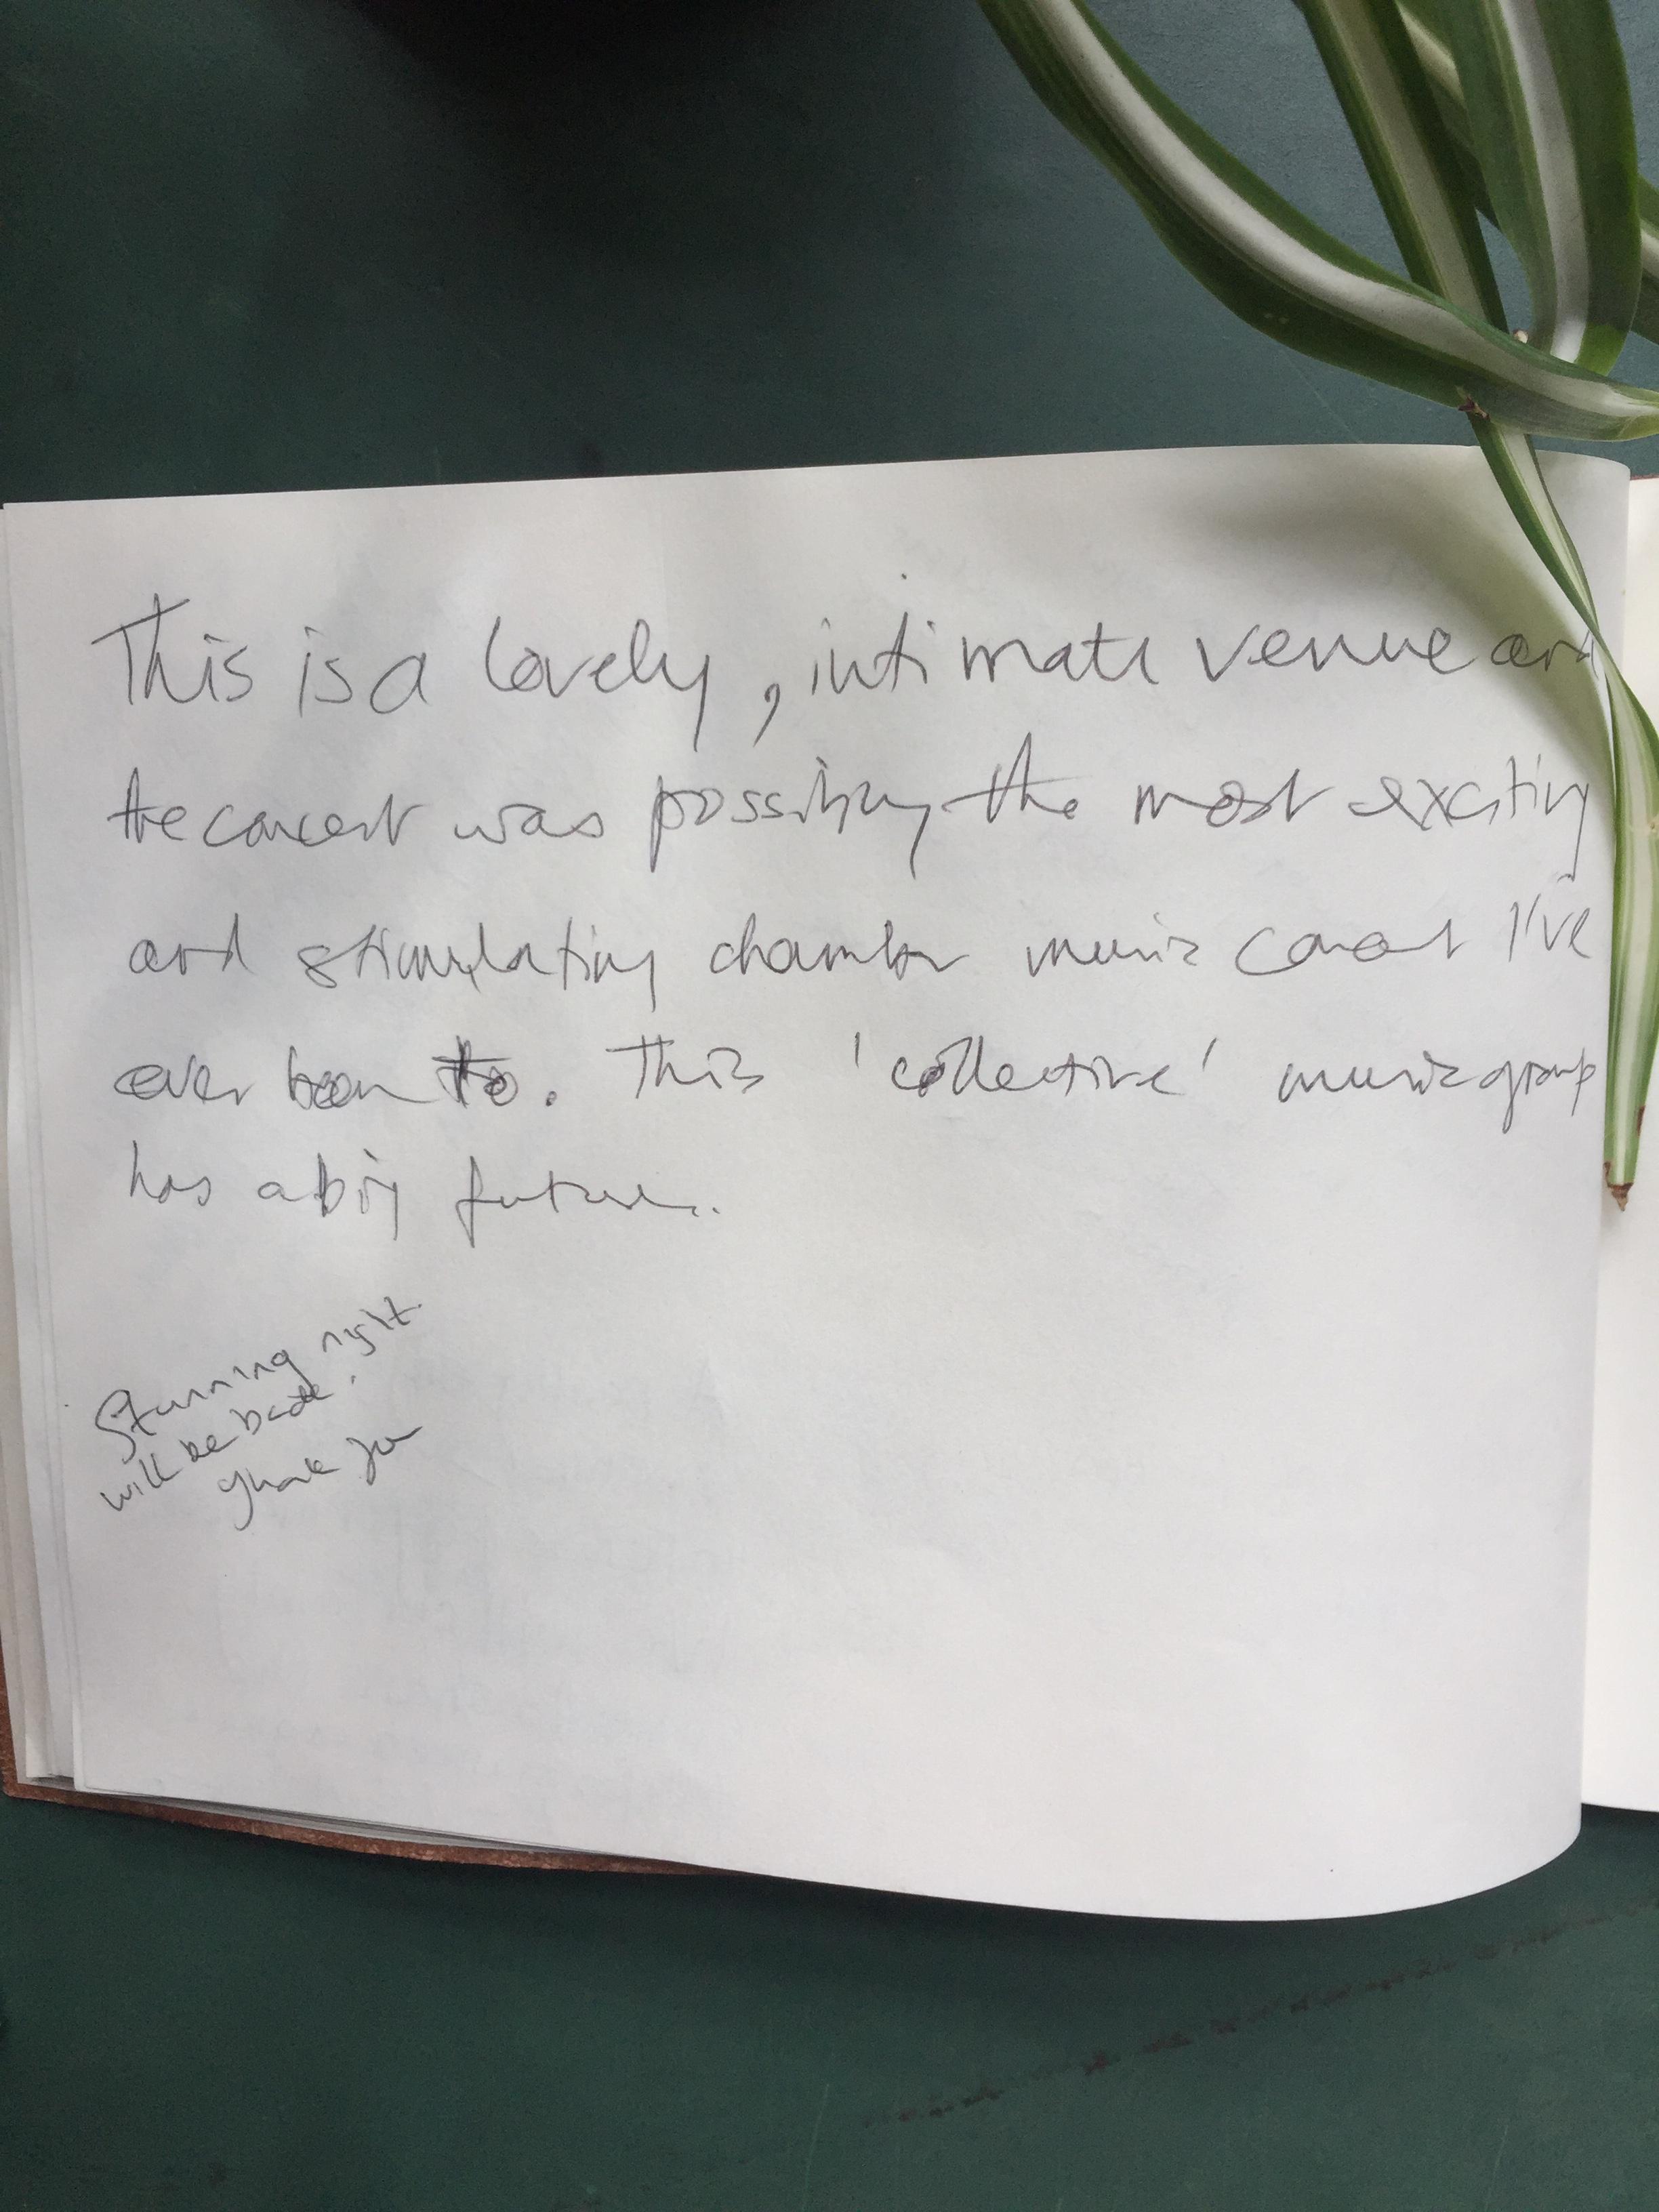 This is a lovely, intimate venue and
the concert was possibly the most exciting
and stimulating chamber music concert I've
ever been to. This 'collective' music group
has a big future.
Stunning night.
will be back.
Thank you